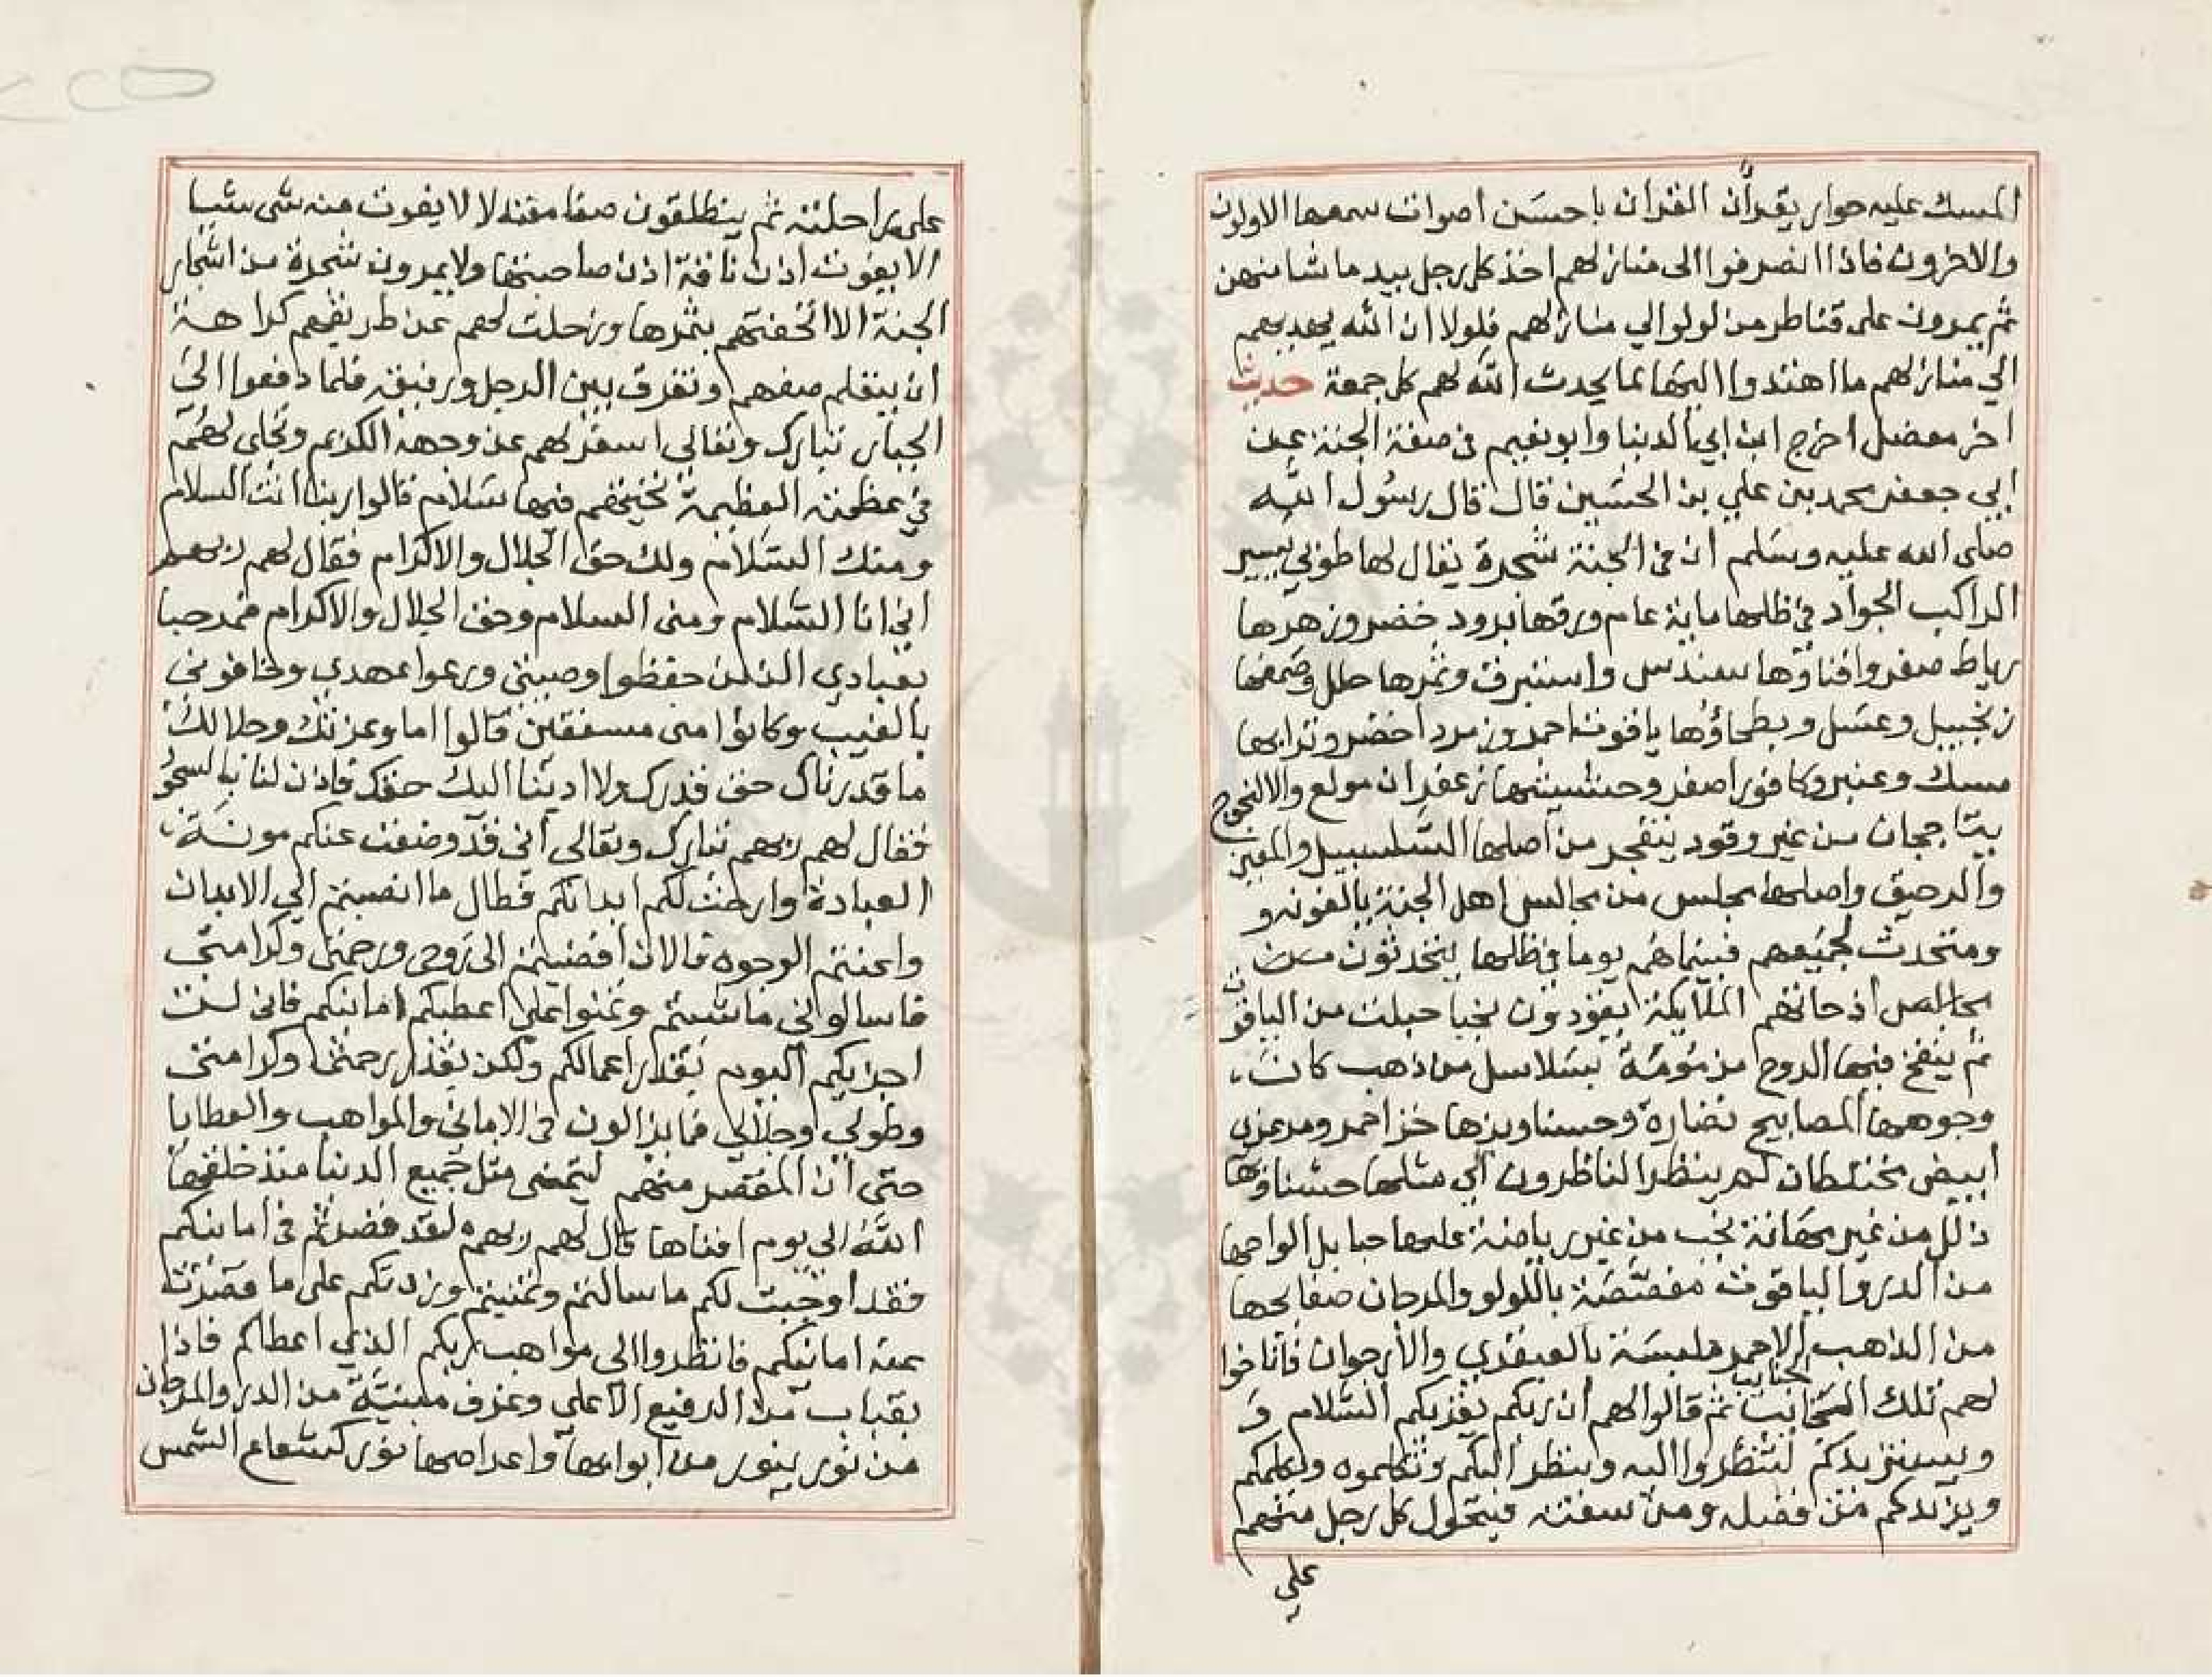 المسك عليه جوار يقرأن القران باحسن اصوات سمعها الاولون
والاخرون فاذا انصرفوا الى منازلهم اخذ كل رجل بيد ماشا منهن
ثم يمرون على قناطر من لولو الي منازلهم فلولا ان الله يهديهم
الي منازلهم ما اهتدوا اليها بما يحدث الله لهم كل جمعة حديث
اخر معضل اخرج ابن ابي الدنيا وابو نعيم في صفة الجنة عن
ابي جعفر محمد بن علي بن الحسين قال قال رسول الله
صلى الله عليه وسلم ان في الجنة شجرة يقال لها طوبي يسير
الراكب الجواد في ظلها ماية عام ورقها برود خضر وزهرها
رياط صفر وافناؤها سندس واستبرق وثمرها حلل وصمغها
زنجبيل وعسل وبطحاؤها ياقوت احمر وزمرد اخضر وترابها
مسك وعنبر وكافور اصفر وحشيشها زعفران مولع والالنجوج
يتاججان من غير وقود يتفجر من اصلها السلسبيل والمعين
والرحيق واصلها مجلس من مجالس اهل الجنة يالفونه و
ومتحدث لجميعهم فبينماهم يوما في ظلها يتحدثون
اذ جاتهم الملايكة يقودون نجبا جبلت من الياقوت
ثم ينفخ فيها الروح مزمومة بسلاسل من ذهب كان
وجوهها المصابيح نضارة وحسنا وبزها خز احمر ومرعزي
ابيض مختلطان لم ينظر الناظرون الي مثلها حسنا وبها
ذلل من غير مهانة نجب من غير رياضة عليها حبايل الواحها
من الدر والياقوت مفضضة باللولو والمرجان صفايحها
من الذهب الاحمر ملبسة بالعبقري والارجوان فاناخوا
لهم تلك النجايب ثم قالوا لهم ان ربكم يقريكم السلام و
ويستزيدكم لتنظروا اليه وينظر اليكم وتكلموه ويكلمكم
ويزيدكم من فضله ومن سعته فيتحول كل رجل منهم
علي
على راحلته ثم ينطلقون صفا معتدلا لا يفوت منه شى شيا
الا يفوت اذن ناقة اذن صاحبتها ولا يمرون شجرة من اشجار
الجنة الا اتحفتهم بثمرها وزحلت لهم عن طريقهم كراهة
ان ينثلم صفهم وتفرق بين الرجل ورفيقه فلما دفعوا الى
الجبار تبارك وتعالى اسفر لهم عن وجهه الكريم وتجلى لهم
في عظمته العظيمة تحيتهم فيها سلام قالوا ربنا انت السلام
ومنك السلام ولك حق الجلال والاكرام فقال لهم ربهم
انى انا السلام ومنى السلام وحق الجلال والاكرام فمرحبا
بعبادي الذين حفظوا وصيتى ورعوا عهدي وخافونى
بالغيب وكانوا منى مشفقين قالوا اما وعزتك وجلالك
ما قدرناك حق قدرك ولا ادينا اليك حقك فاذن لنا بالسجود
فقال لهم ربهم تبارك وتعالى انى قد وضعت عنكم مونة
العبادة وارحت لكم ابدانكم فطال ما انصبتم الي الابدان
واعنتم الوجوه فالان افضيتم الى روحى ورحمتى وكرامتى
فاسالوانى ماشيتم وتمنوا على اعطيكم امانيكم فانى لست
اجزيكم اليوم بقدر اعمالكم ولكن بقدر رحمتى وكرامتى
وطولي وجلالي فما يزالون في الامانى والمواهب والعطايا
حتى ان المقصر منهم ليتمنى مثل جميع الدنيا منذ خلقها
الله الى يوم افناها قال لهم ربهم لقد قصرتم في امانيكم
فقد اوجبت لكم ما سالتم وتمنيتم وزدتكم على ما قصرت
عنه امانيكم فانظروا الى مواهب ربكم الذي اعطاكم فاذا
بقباب من الرفيع الاعلى وغرف مبنية من الدر والمرجان
من نور ينور من ابوابها واعراصها نور كشعاع الشمس